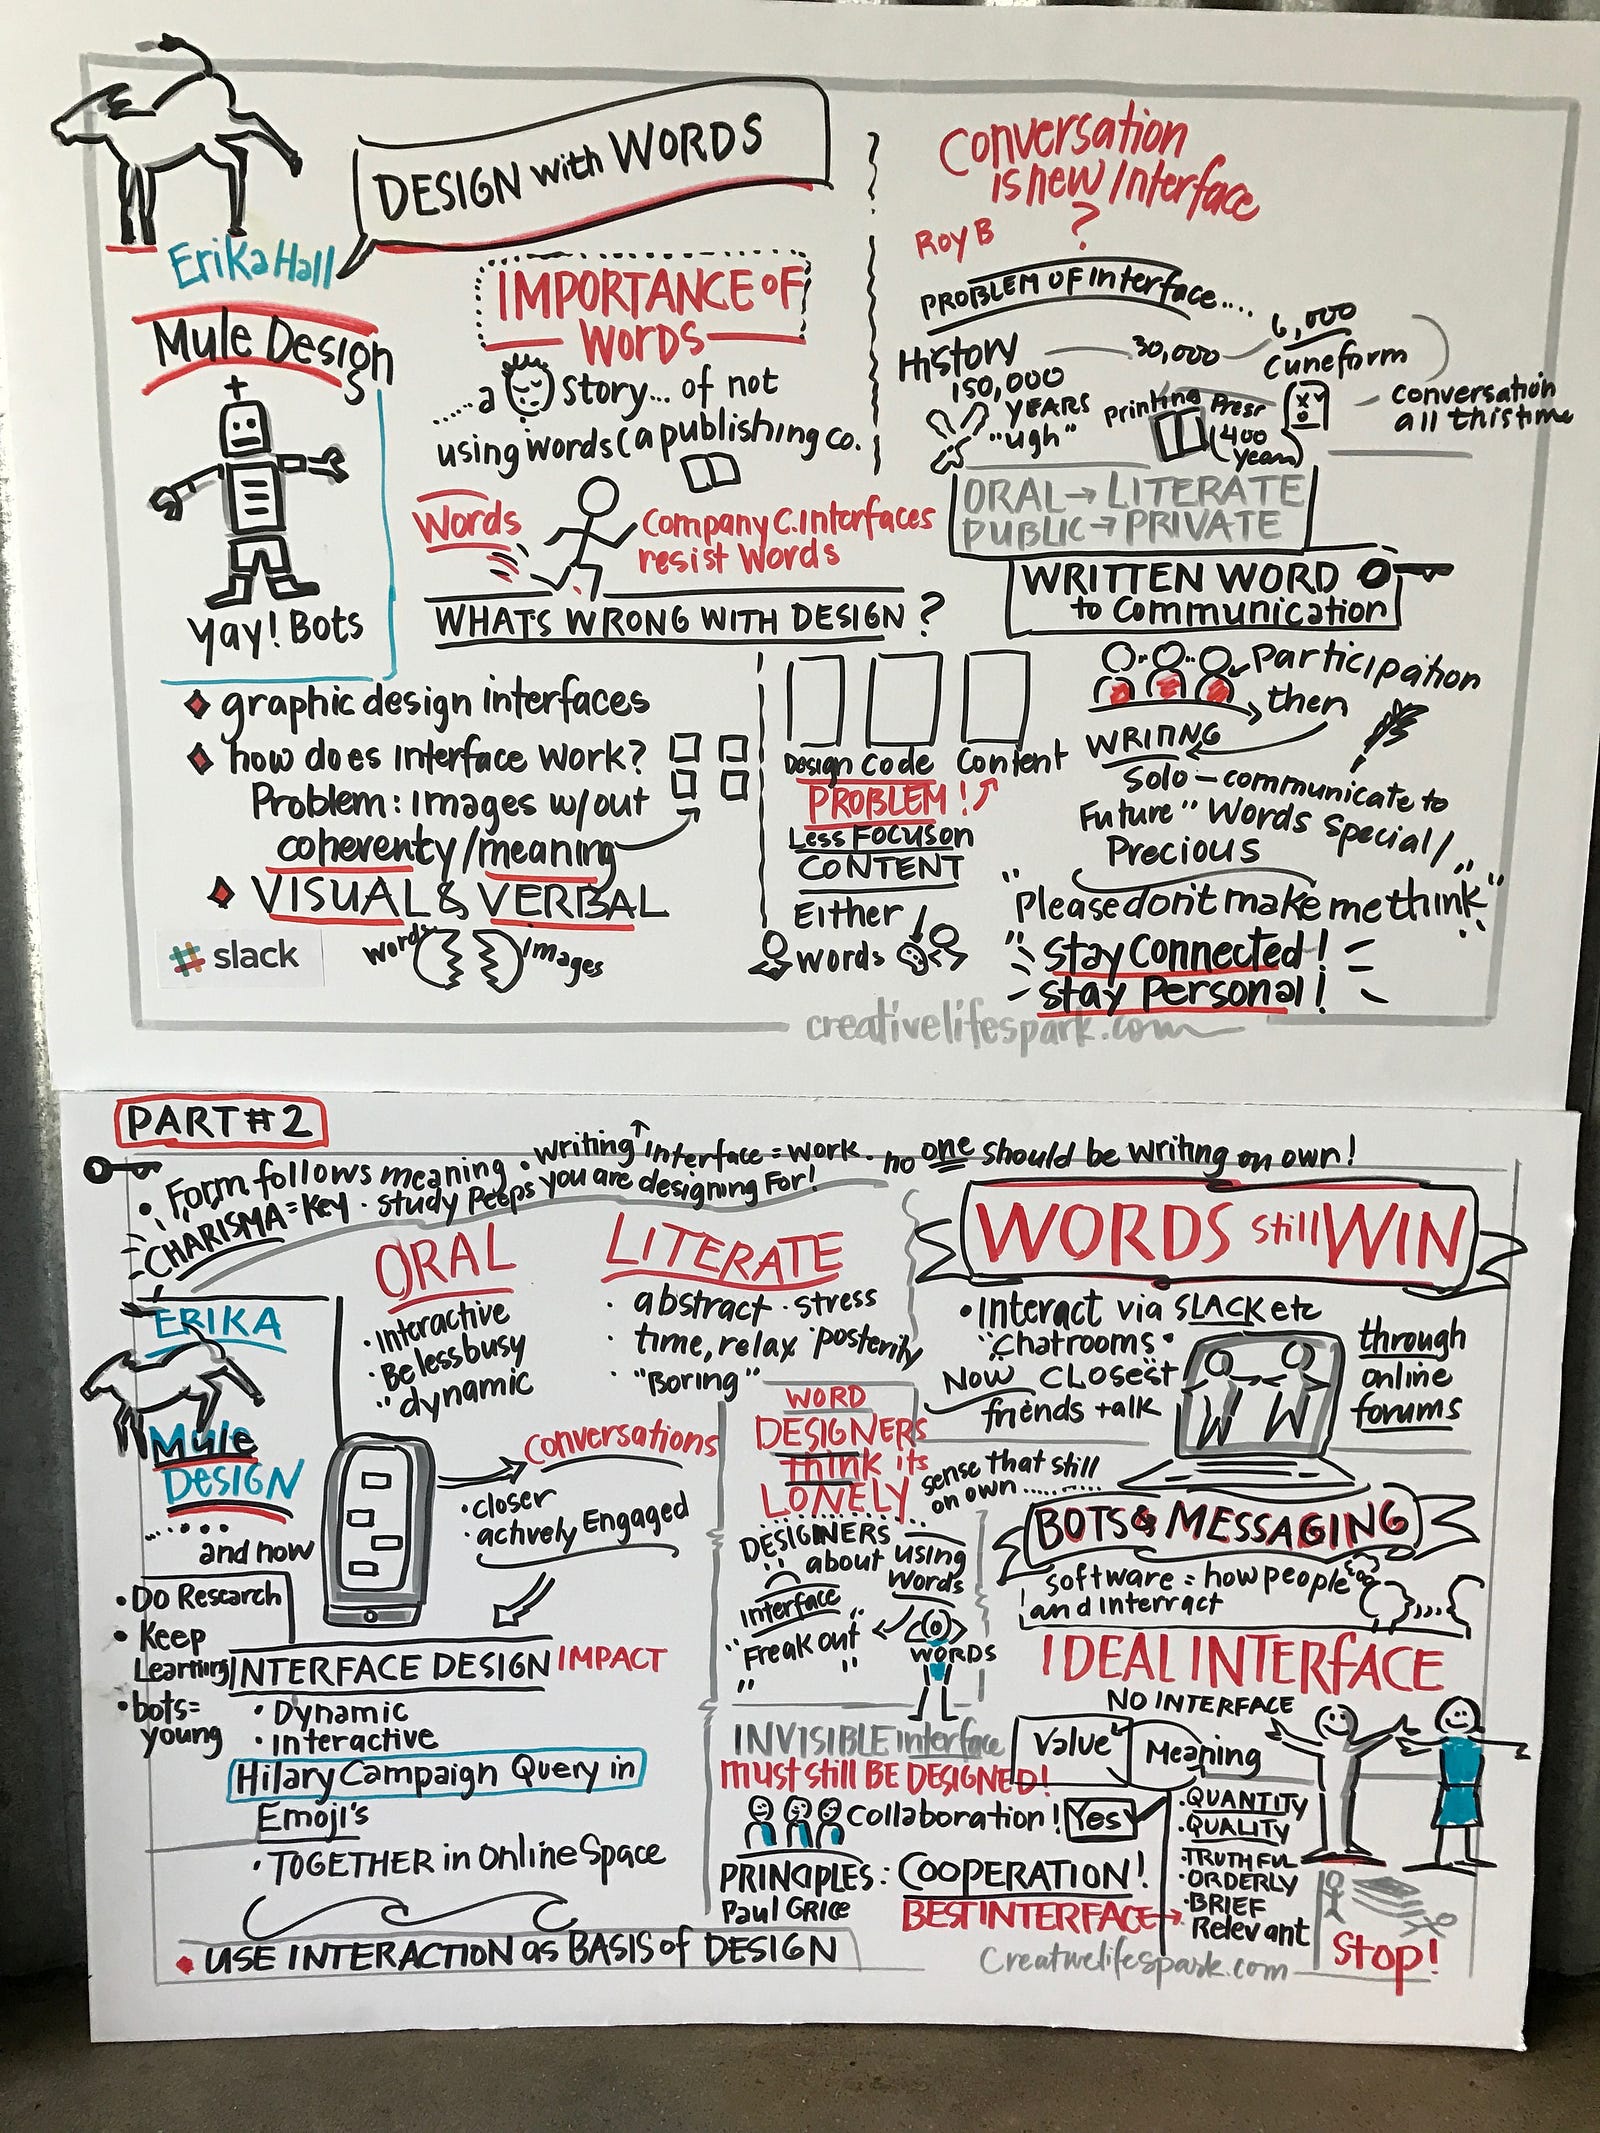 DESIGN with WORDS
Erika Hall
Mule Design
yay! Bots
IMPORTANCE OF
WORDS
..... a story... of not
using words (a publishing co.
Words
Company C. Interfaces
resist words
WHATS WRONG WITH DESIGN?
graphic design interfaces
how does interface work?
Problem: Images w/out
coherenty/meaning
VISUAL & VERBAL
words
images
slack
Design Code Content
PROBLEM!
Less Focus on
CONTENT
Either
words
Conversation
is new Interface
?
Roy B
PROBLEM OF Interface....
History
150,000
YEARS
"ugh"
30,000
6,000
Cuneform
Printing Press
(400
years)
conversation
all this time
ORAL → LITERATE
PUBLIC → PRIVATE
WRITTEN WORD
to Communication
Participation
then
WRITING
Solo - communicate to
Future" Words Special/
Precious
"Please don't make me think"
Stay Connected!
Stay Personal!
creativelifespark.com
PART #2
• Form follows meaning • writing interface = work. no one should be writing on own!
CHARISMA = Key • study Peeps you are designing For!
ERIKA
Mule
DESIGN
..... and now
• Do Research
• Keep
Learning
• bots =
young
ORAL
• Interactive
• Be less busy
• dynamic
LITERATE
• abstract • stress
• time, relax • posterity
• "Boring"
Conversations
• closer
• actively Engaged
INTERFACE DESIGN IMPACT
• Dynamic
• interactive
Hilary Campaign Query in
Emoji's
• TOGETHER in Online Space
USE INTERACTION as BASIS of DESIGN
WORD
DESIGNERS
think its
LONELY
sense that still
on own..........
DESIGINERS
about using
words
interface
"Freak out"
WORDS
INVISIBLE interface
must still BE DESIGNED!
Collaboration! Yes
PRINCIPLES: COOPERATION!
Paul GRICE
BEST INTERFACE →
WORDS still WIN
• Interact via SLACK etc
"Chatrooms"
Now CLOSEST
friends talk
through
online
forums
BOTS & MESSAGING
software = how people
and interract
IDEAL INTERFACE
NO INTERFACE
Value
Meaning
• QUANTITY
• QUALITY
• TRUTHFUL
• ORDERLY
• BRIEF
Relevant
Stop!
Creativelifespark.com